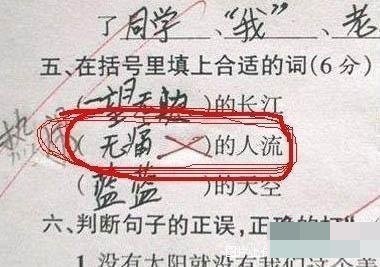 了同学、“我”、老
五、在括号里填上合适的词(6分)
(一望无)的长江
(无痛)的人流
(蓝蓝)的天空
六、判断句子的正误，正确的打
1.没有太阳就没有我们这个美